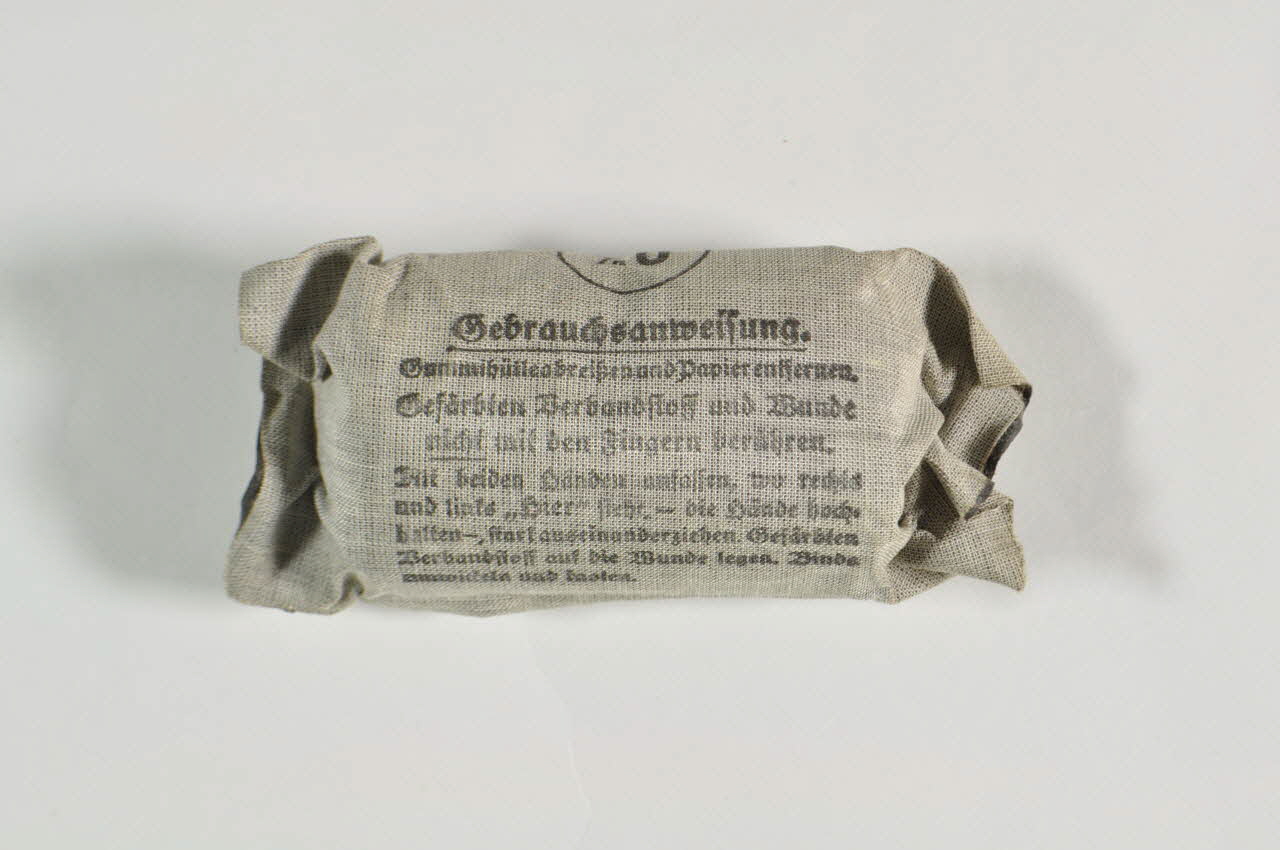 Gebrauchsanweisung.
Gummihülle abreißen und Papier entfernen.
Gefärbten Verbandstoff und Wunde
nicht mit den Fingern berühren.
Mit beiden Händen umfassen, wo rechts
und links „Hier“ steht, – die Hände hoch-
halten –, stark auseinanderziehen. Gefärbten
Verbandstoff auf die Wunde legen. Binde
umwickeln und knoten.